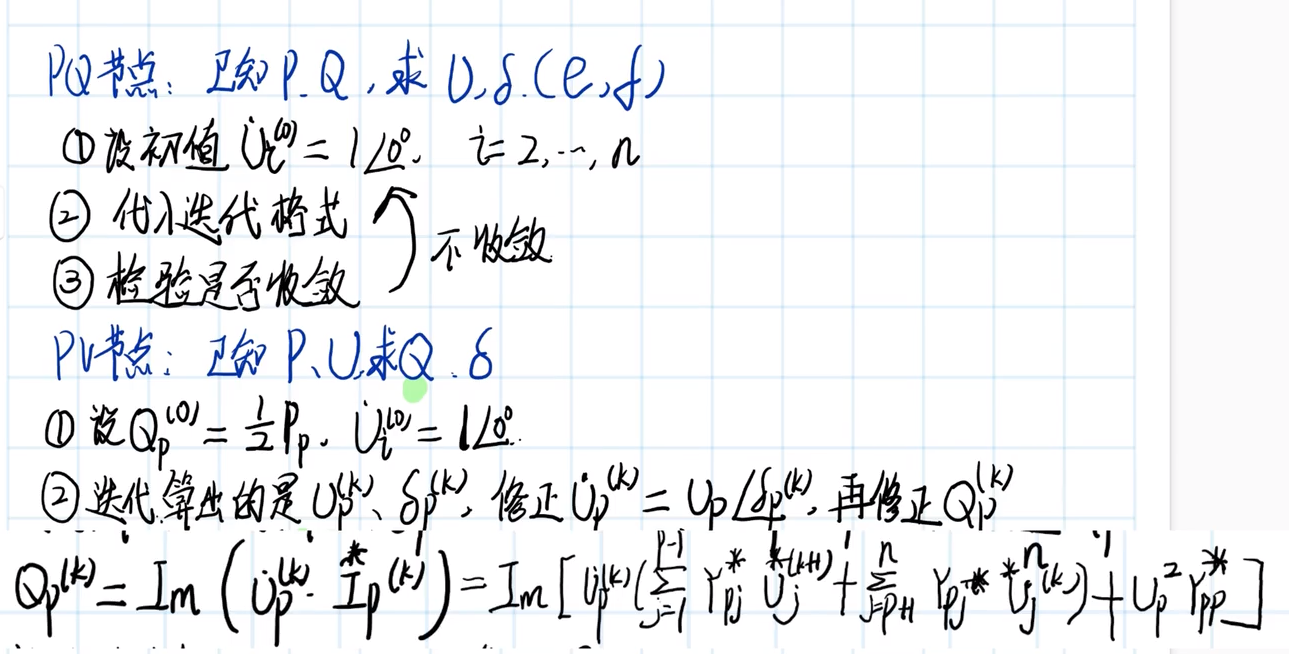 PQ节点：已知P、Q，求U、δ.(e,f)
①设初值 U̇ᵢ⁽⁰⁾ = 1∠0°. i=2,…,n
②代入迭代格式
③检验是否收敛 不收敛
PV节点：已知P、U,求Q、δ
①设Qₚ⁽⁰⁾ = ½Pₚ. U̇ᵢ⁽⁰⁾ = 1∠0°.
②迭代算出的是Uₚ⁽ᵏ⁾、δₚ⁽ᵏ⁾, 修正U̇ₚ⁽ᵏ⁾ = Uₚ∠δₚ⁽ᵏ⁾, 再修正Qₚ⁽ᵏ⁾
Qₚ⁽ᵏ⁾ = Im (U̇ₚ⁽ᵏ⁾· I*ₚ⁽ᵏ⁾) = Im [U̇ₚ⁽ᵏ⁾(Σ_{j=1}^{p-1} Y*_{pj} U*_j^{(k+1)} + Σ_{j=p+1}^{n} Y_{pj}^* U*_j^{(k)}) + Uₚ² Y*_{pp}]